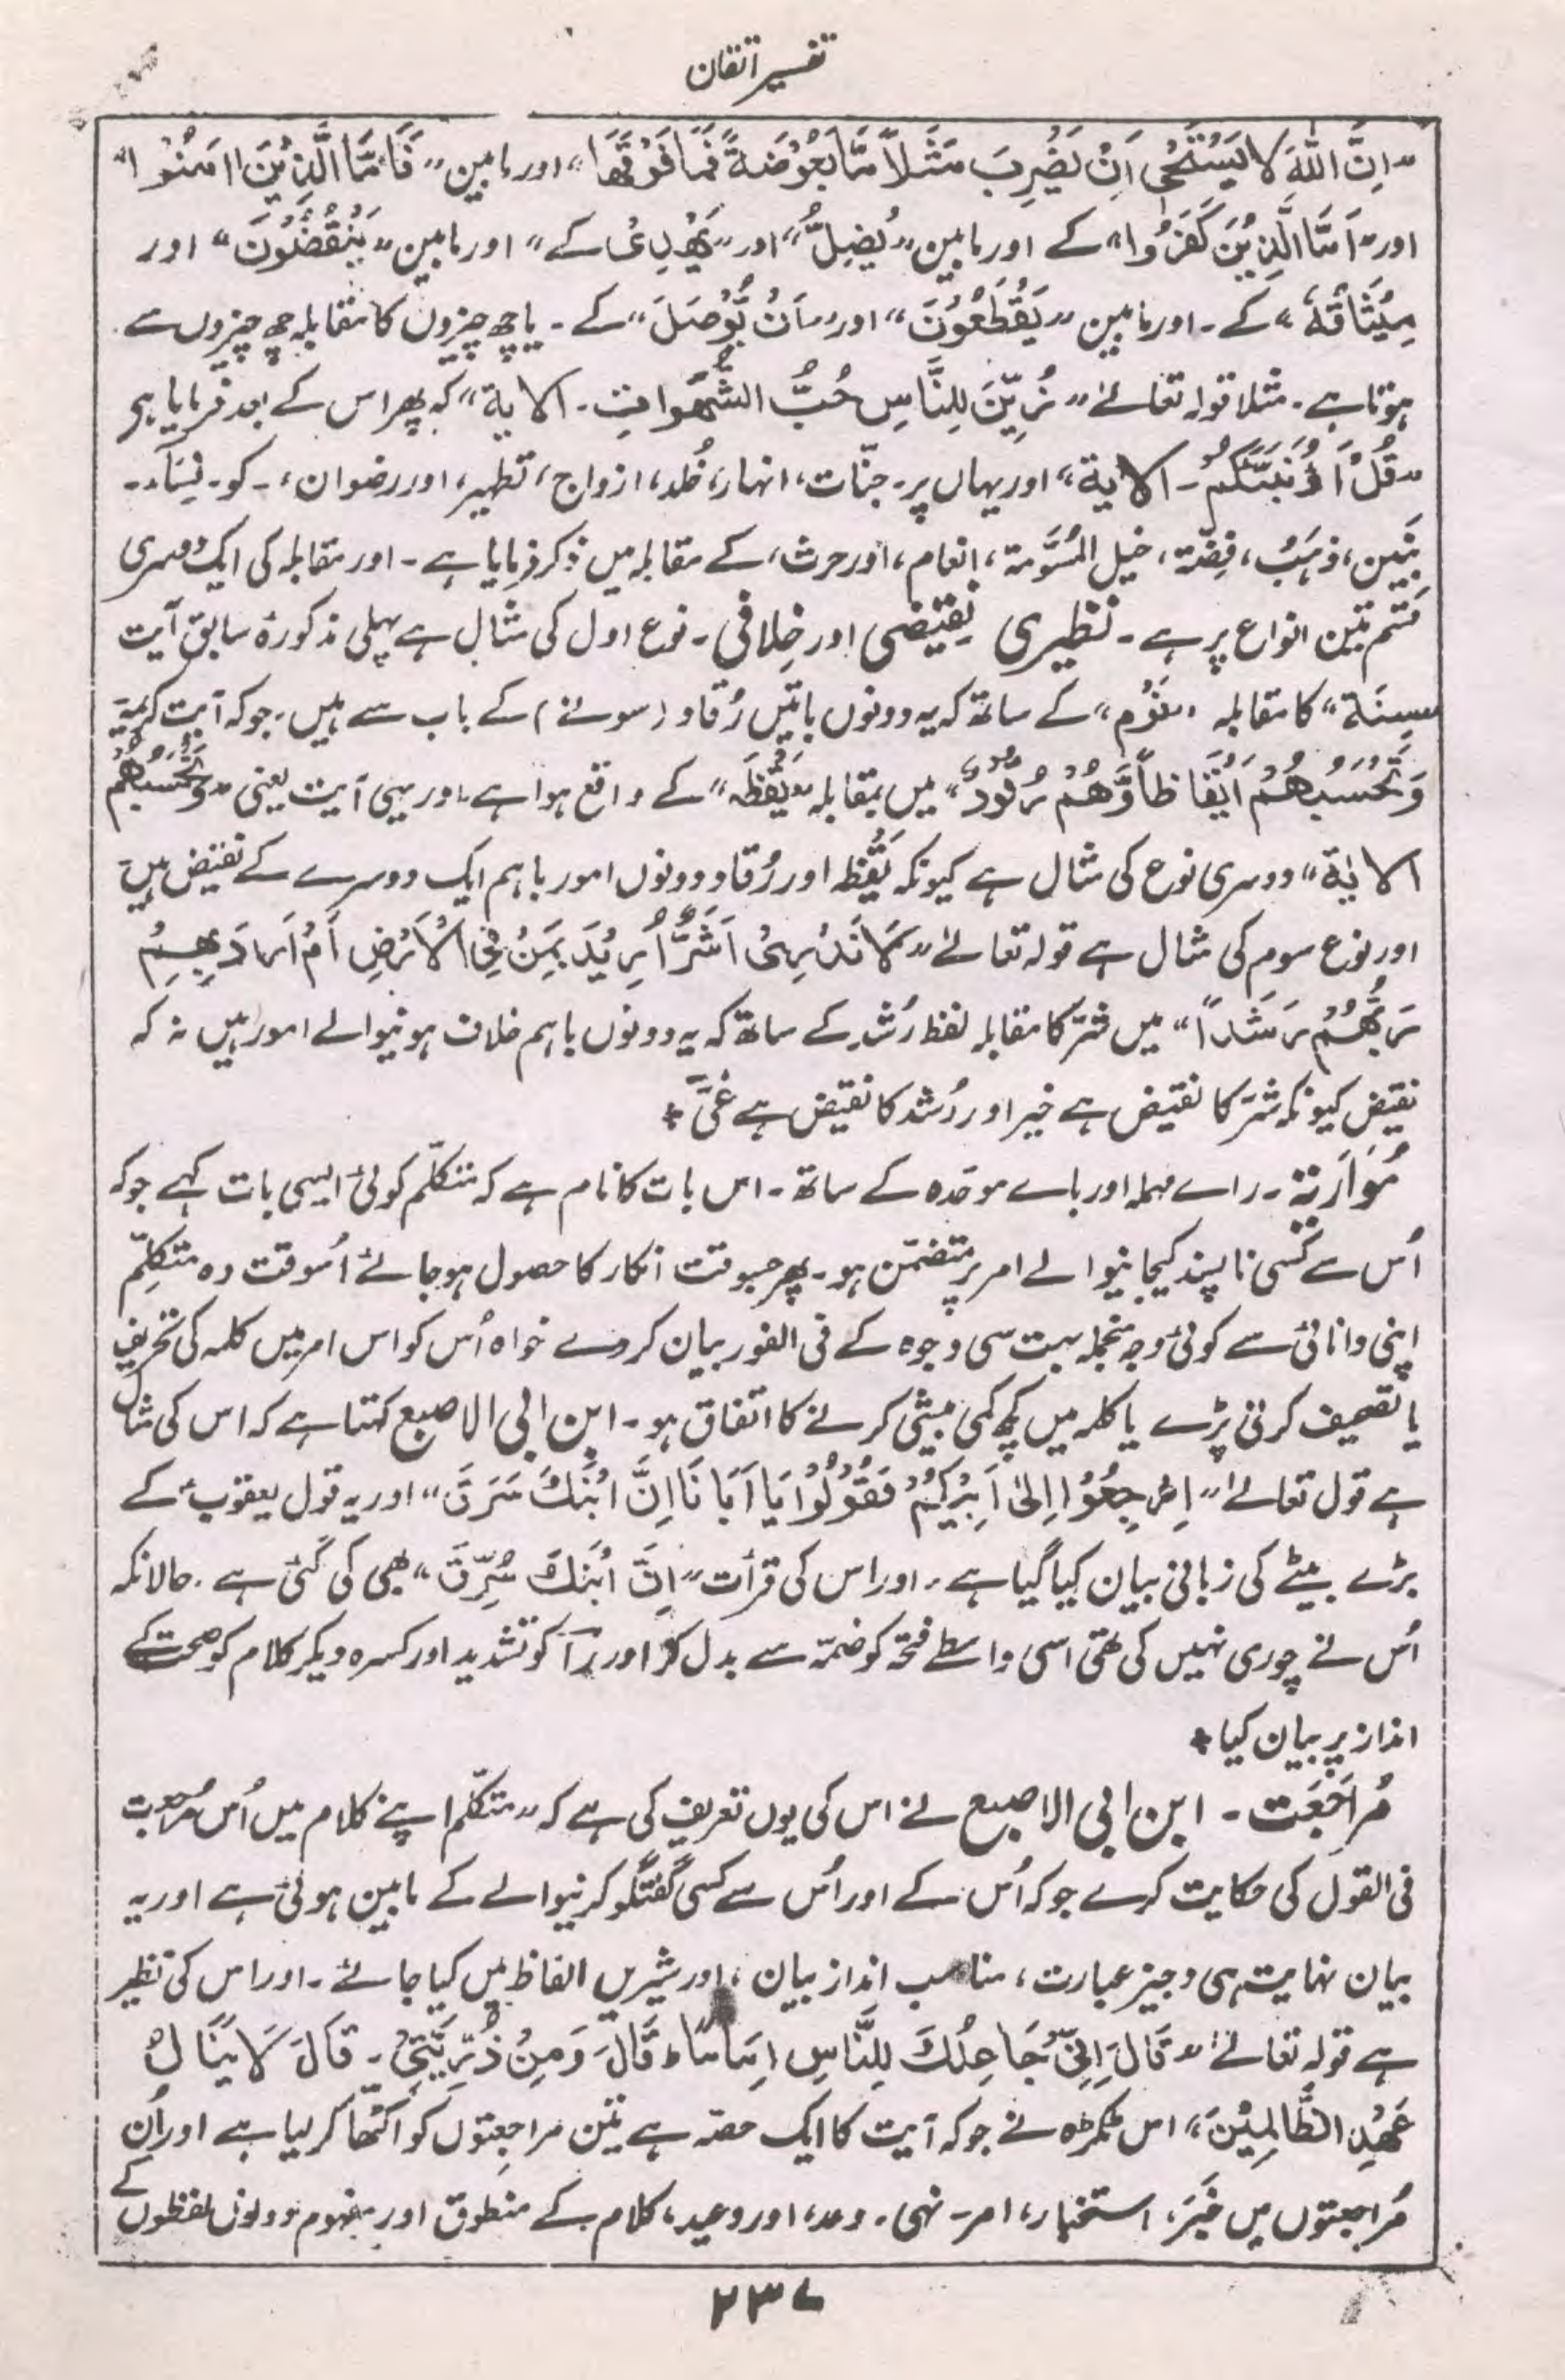 تفسیر اتقان
"اِنَّ اللّٰهَ لَا یَسْتَحْیٖ اَنْ یَّضْرِبَ مَثَلاً مَّا بَعُوْضَةً فَمَا فَوْقَهَا" اور مابین "فَاَمَّا الَّذِیْنَ اٰمَنُوْا"
اور "اَمَّا الَّذِیْنَ كَفَرُوْا" کے اور مابین "یُضِلُّ" اور "یَهْدِیْ کے" اور مابین "یَنْقُضُوْنَ" اور
مِیْثَاقَهٗ" کے۔ اور مابین "یَقْطَعُوْنَ" اور "اَنْ یُّوْصَلَ" کے۔ یا چھ چیزوں کا مقابلہ چھ چیزوں سے
ہوتا ہے۔ مثلا قولہ تعالےٰ "زُیِّنَ لِلنَّاسِ حُبُّ الشَّهَوَاتِ۔ الاٰیة" کہ پھر اس کے بعد فرمایا ہے
"قُلْ اَؤُنَبِّئُكُمْ۔ الاٰیة" اور یہاں پر۔ جنّات، انہار، خُلد، ازواج، تطہیر، اور رضوان،۔ کو۔ نِسَآء۔
بَنِین، ذہَب، فِضّة، خیل المُسَوَّمة، انعام، اور حرث، کے مقابلہ میں ذکر فرمایا ہے۔ اور مقابلہ کی ایک دوسری
قسم تین انواع پر ہے۔ نظیری نقیضی اور خِلافی۔ نوع اول کی مثال ہے پہلی مذکورۂ سابق آیت
"سِنَة" کا مقابلہ "نَوْم" کے ساتھ کہ یہ دونوں باتیں رُقاد (سونے) کے باب سے ہیں۔ جو کہ آیت کریمۃ
وَتَحْسَبُهُمْ اَیْقَاظاً وَّهُمْ رُقُوْدٌ" میں بمقابلہ "یَقْظَه" کے واقع ہوا ہے۔ اور یہی آیت یعنی "وَتَحْسَبُهُمْ
الاٰیة" دوسری نوع کی مثال ہے کیونکہ یَقْظہ اور رُقاد دونوں امور باہم ایک دوسرے کے نقیض ہیں
اور نوع سوم کی مثال ہے قولہ تعالےٰ "لَا نَدْرِیْ اَشَرٌّ اُرِیْدَ بِمَنْ فِی الْاَرْضِ اَمْ اَرَادَ بِهِمْ
رَبُّهُمْ رَشَداً" میں شرّ کا مقابلہ لفظ رُشد کے ساتھ کہ یہ دونوں باہم خلاف ہونیوالے امور ہیں نہ کہ
نقیض کیونکہ شرّ کا نقیض ہے خیر اور رُشد کا نقیض ہے غیّ٭
مُوَارَبة۔ راے مہملہ اور باے موحّدہ کے ساتھ۔ اس بات کا نام ہے کہ متکلّم کوئی ایسی بات کہے جو کہ
اُس سے کسی ناپسند کیجانیوالے امر پر متضمّن ہو۔ پھر جبوقت انکار کا حصول ہو جائے اُسوقت وہ متکلّم
اپنی دانائی سے کوئی وجہ منجملہ بہت سی وجوہ کے فی الفور بیان کر دے خواہ اُس کو اس امر میں کلمہ کی تحریف
یا تصحیف کرنی پڑے یا کلمہ میں کچھ کمی بیشی کرنے کا اتفاق ہو۔ ابن ابی الاصبع کہتا ہے کہ اس کی مثال
ہے قول تعالےٰ "اِرْجِعُوْا اِلیٰ اَبِیْكُمْ فَقُوْلُوْا یَا اَبَانَا اِنَّ ابْنَكَ سَرَقَ" اور یہ قول یعقوبؑ کے
بڑے بیٹے کی زبانی بیان کیا گیا ہے۔ اور اس کی قرأت "اِنَّ ابْنَكَ سُرِّقَ" بھی کی گئی ہے۔ حالانکہ
اُس نے چوری نہیں کی تھی اسی واسطے فتحہ کو ضمّہ سے بدل کر اور رآ کو تشدید اور کسرہ دیکر کلام کو صحت کے
انداز پر بیان کیا٭
مُراجَعَت۔ ابن ابی الاصبع نے اس کی یوں تعریف کی ہے کہ "متکلّم اپنے کلام میں اُس مُراجعت
فی القول کی حکایت کرے جو کہ اُس کے اور اُس سے کسی گفتگو کرنیوالے کے مابین ہوئی ہے اور یہ
بیان نہایت ہی وجیز عبارت، مناسب انداز بیان، اور شیریں الفاظ میں کیا جائے۔ اور اس کی نظیر
ہے قولہ تعالےٰ "قَالَ اِنِّیْ جَاعِلُكَ لِلنَّاسِ اِمَامًا ط قَالَ وَمِنْ ذُرِّیَّتِیْ۔ قَالَ لَا یَنَالُ
عَهْدِی الظَّالِمِیْنَ" اس ٹکڑہ نے جو کہ آیت کا ایک حصّہ ہے تین مراجعتوں کو اکٹھا کر لیا ہے اور اُن
مُراجعتوں میں خَبَر، استخبار، امر۔ نہی۔ وعد، اور وعید، کلام کے منطوق اور مفہوم دونوں لفظوں کے
۲۳۷